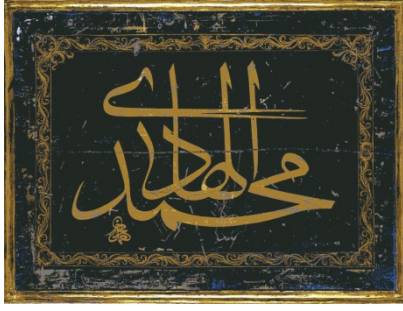 محمد الهادي